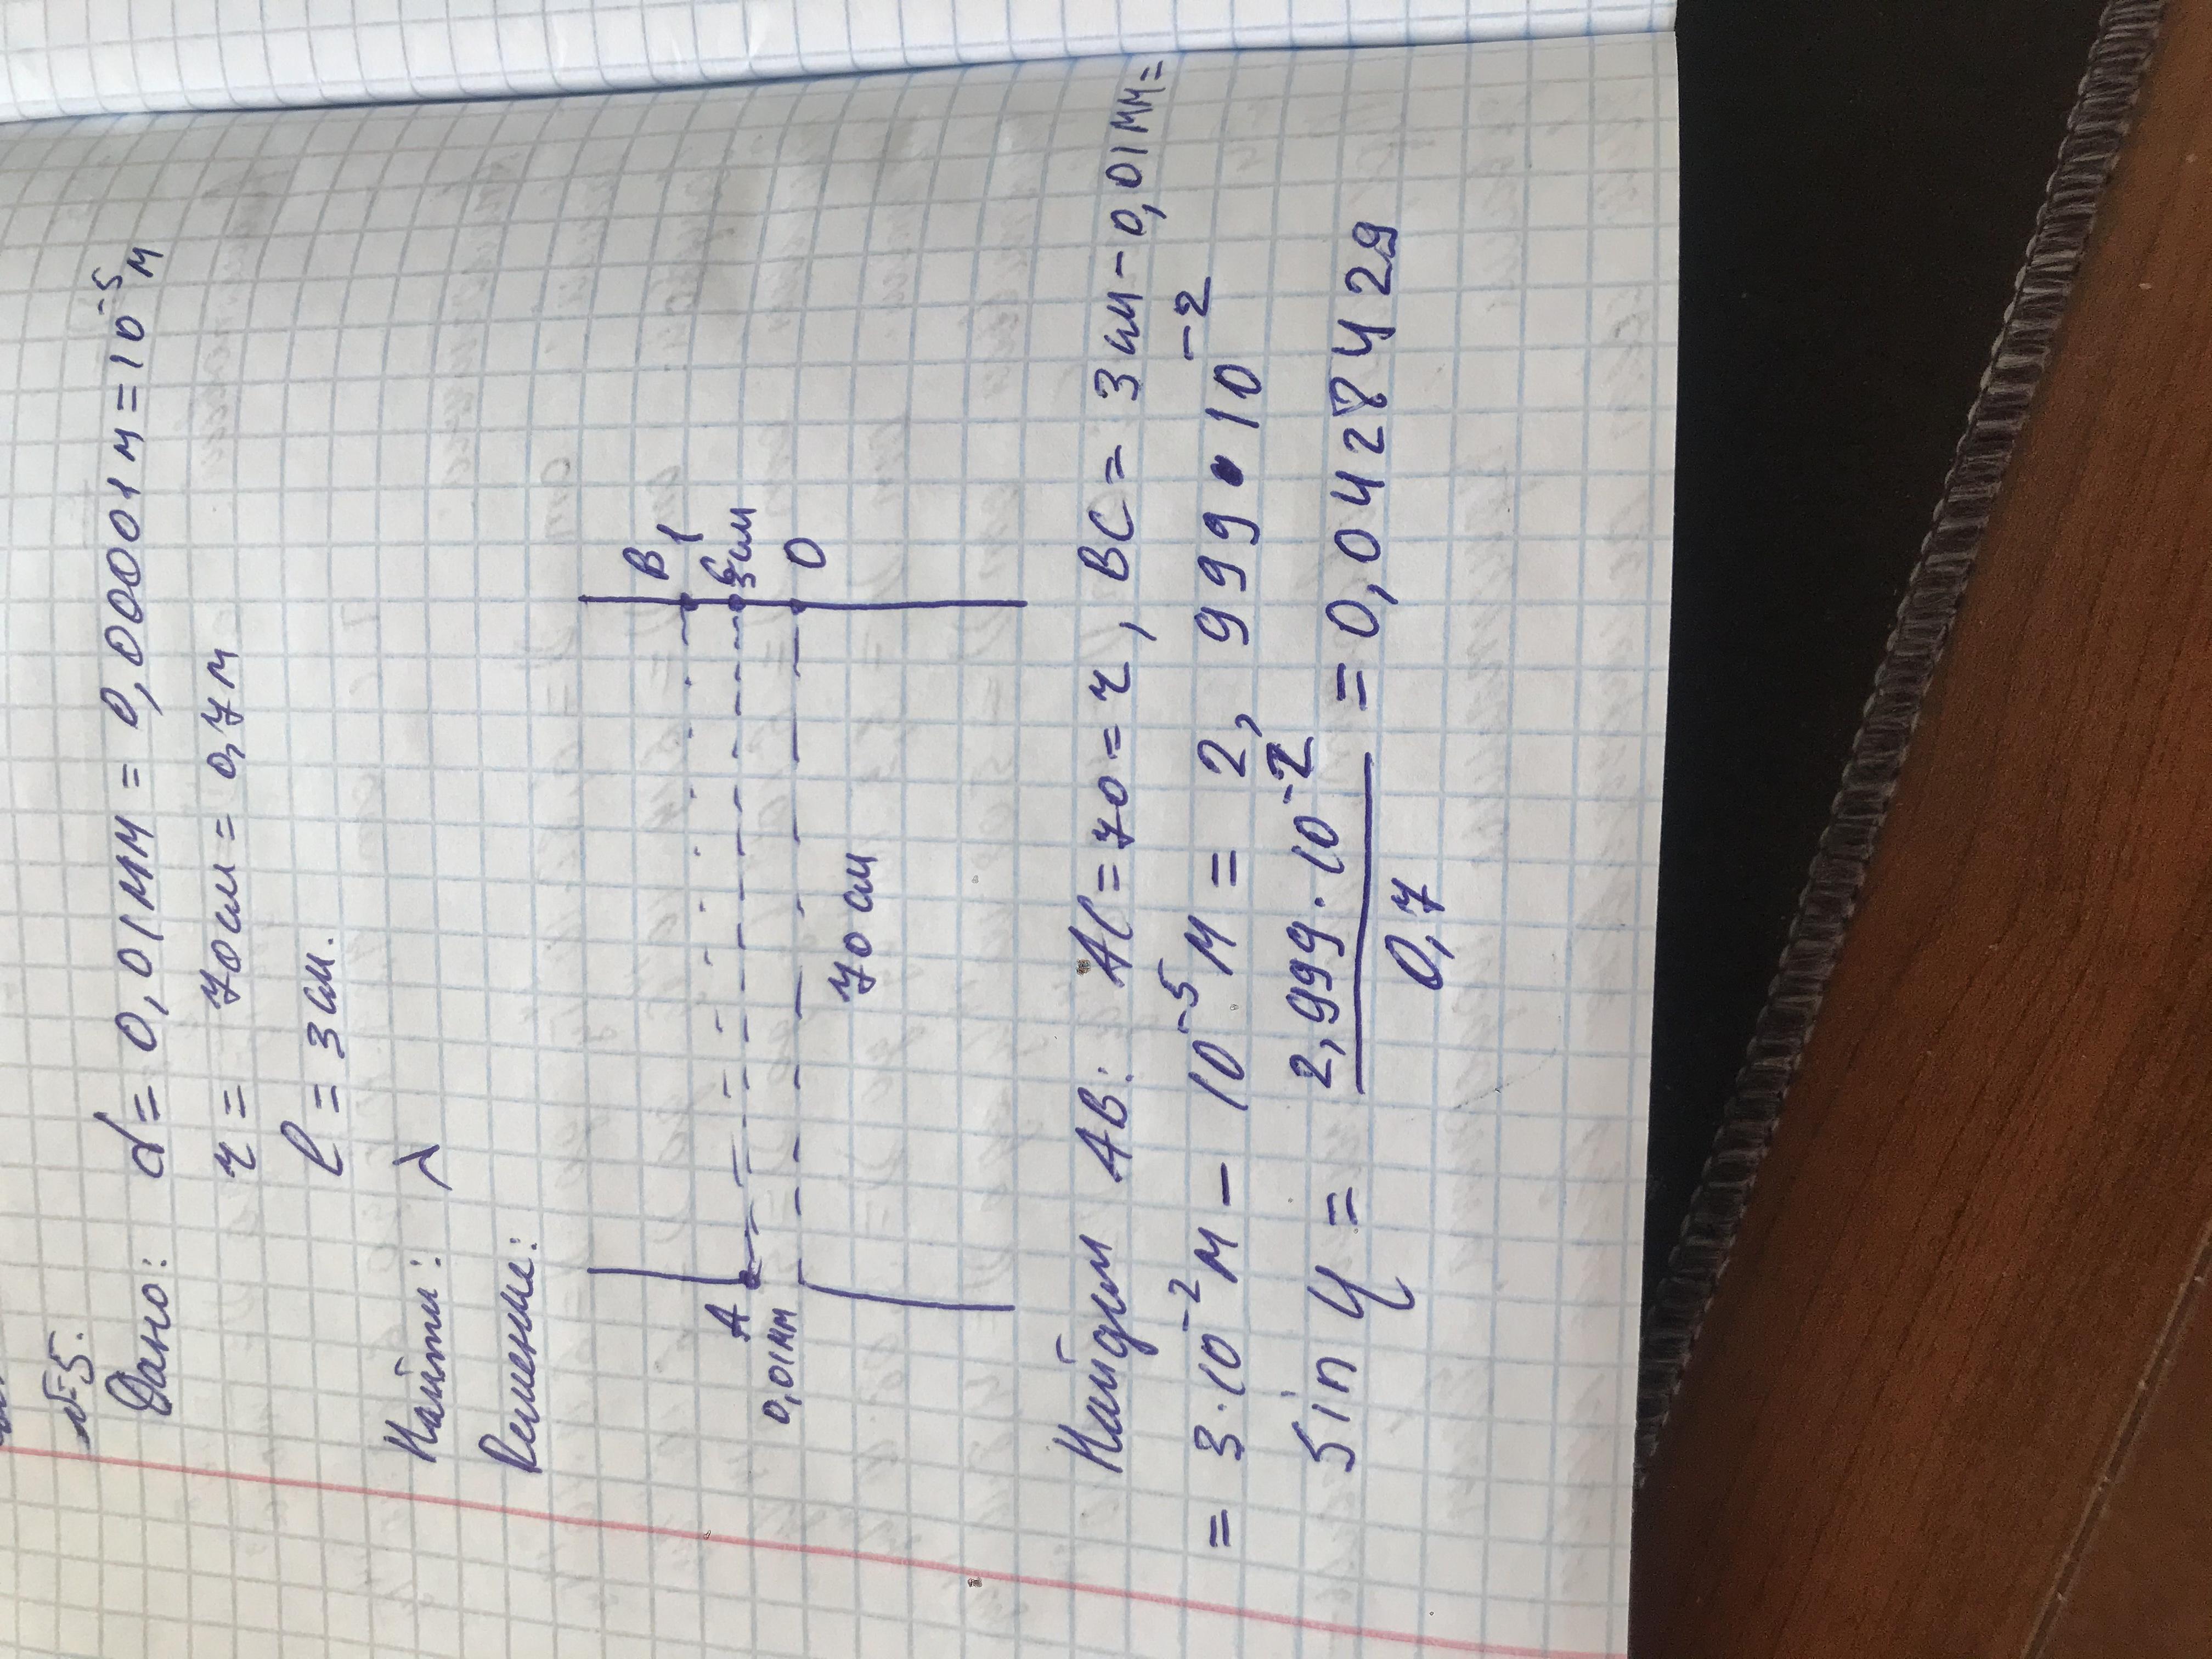 №5.
Дано: d = 0,01мм = 0,00001м = 10⁻⁵м
r = 70см = 0,7м
l = 3см.
Найти: λ
Решение:
A
0,01мм
B
C
3см
O
70см
Найдем AB: AC = 70 = r, BC = 3см - 0,01мм =
= 3·10⁻²м - 10⁻⁵м = 2,999·10⁻²
sin φ = 2,999·10⁻² / 0,7 = 0,0428429